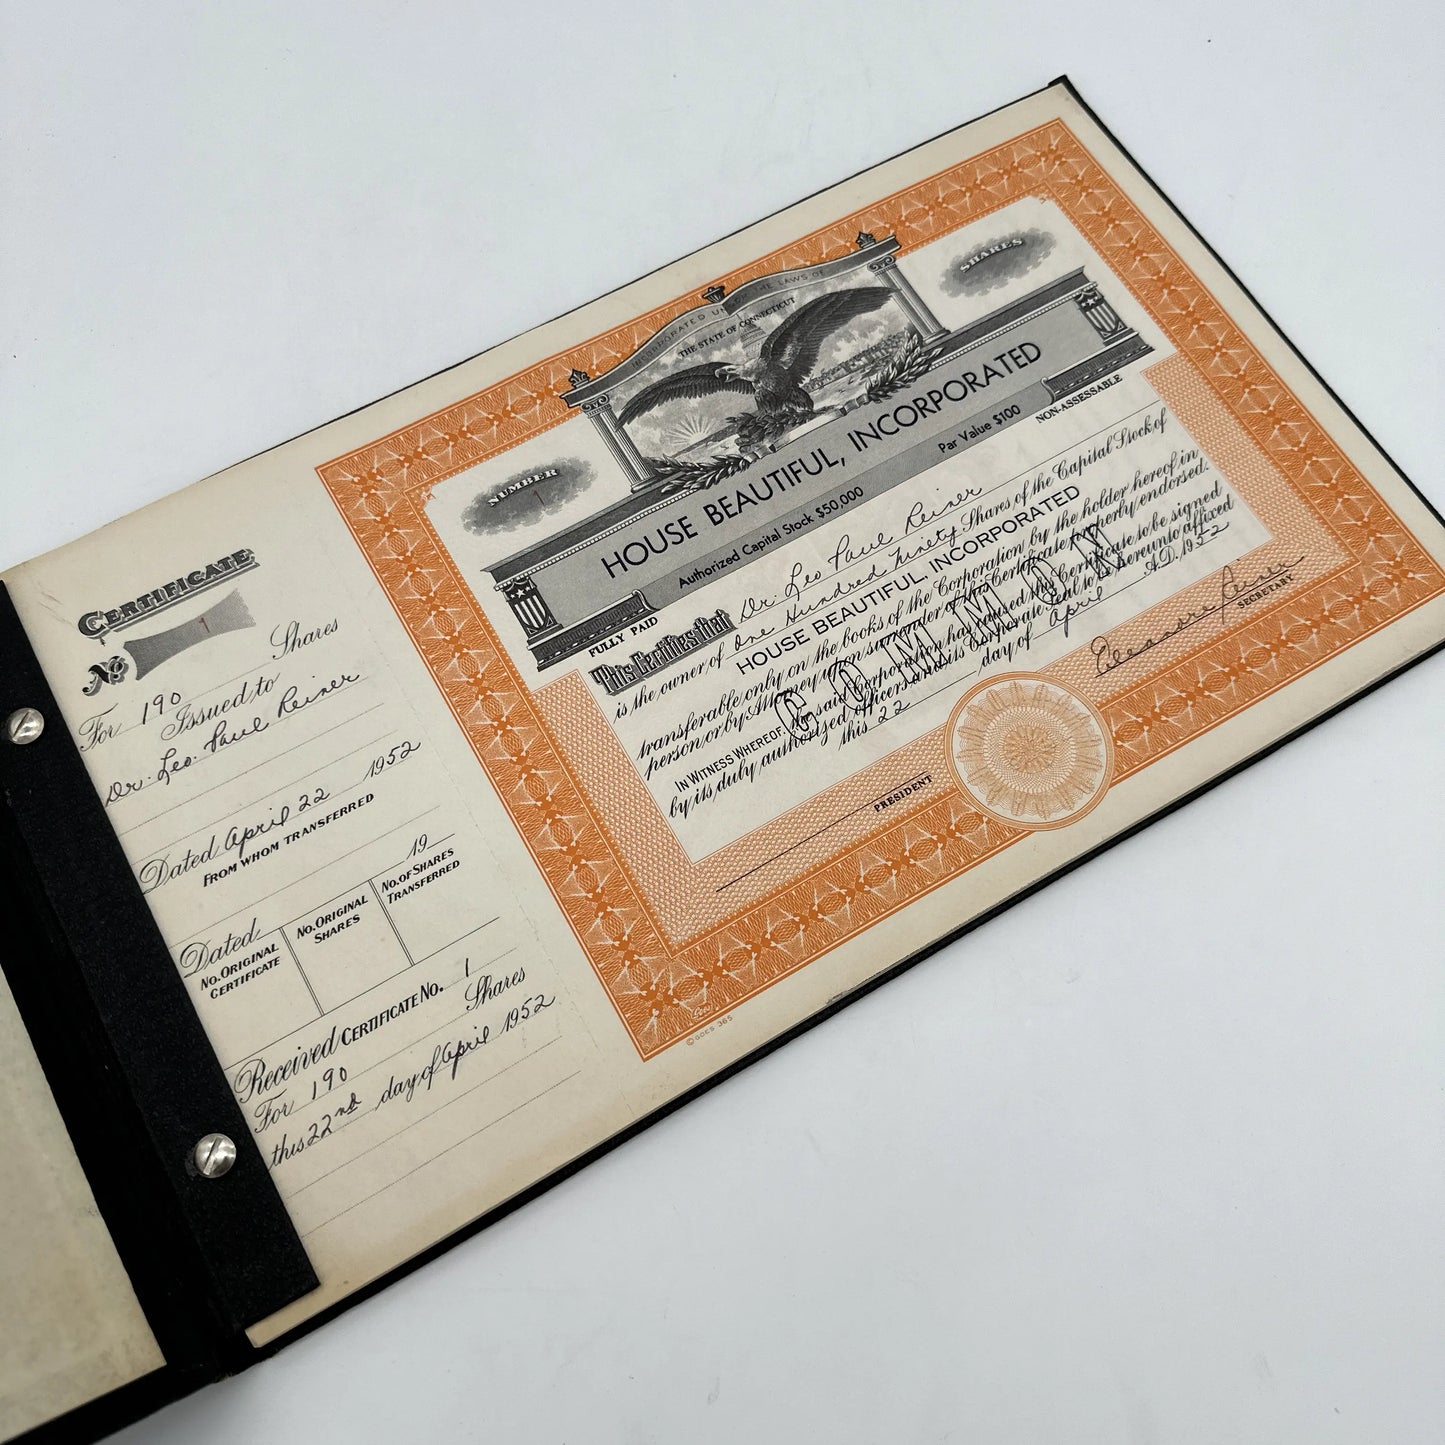 CERTIFICATE
No. 1
For 190 Shares
Issued to
Dr. Leo. Paul Reiner
Dated April 22 1952
FROM WHOM TRANSFERRED
Dated 19
NO. ORIGINAL CERTIFICATE
NO. ORIGINAL SHARES
NO. OF SHARES TRANSFERRED
Received CERTIFICATE No. 1
For 190 Shares
this 22nd day of April 1952
INCORPORATED UNDER THE LAWS OF
THE STATE OF CONNECTICUT
NUMBER
1
SHARES
HOUSE BEAUTIFUL, INCORPORATED
Authorized Capital Stock $50,000 Par Value $100
FULLY PAID
NON-ASSESSABLE
This Certifies that Dr. Leo Paul Reiner
is the owner of One Hundred Ninety Shares of the Capital Stock of
HOUSE BEAUTIFUL, INCORPORATED
transferable only on the books of the Corporation by the holder hereof in
person or by Attorney upon surrender of this Certificate properly endorsed.
IN WITNESS WHEREOF, the said Corporation has caused this Certificate to be signed
by its duly authorized officers and its Corporate Seal to be hereunto affixed
this 22 day of April A.D. 1952
COMMON
PRESIDENT
Reiner
SECRETARY
© GOES 365
Goes